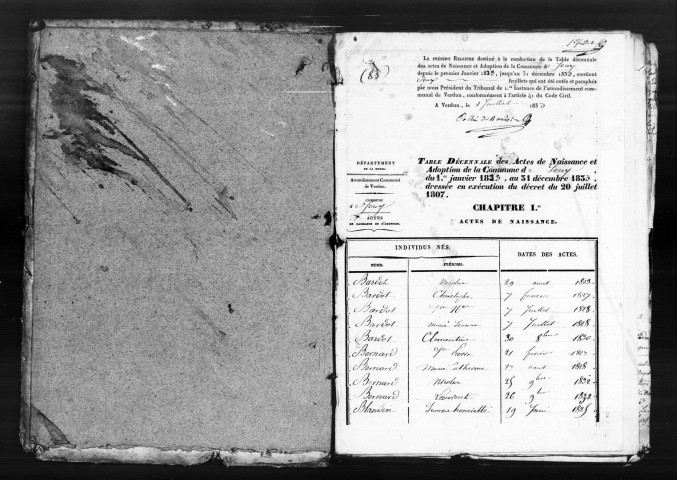 (83)
LE PRÉSENT REGISTRE destiné à la confection de la Table décennale
des actes de Naissance et Adoption de la Commune de Jouy
depuis le premier Janvier 1823, jusqu'au 31 décembre 1833, contient
feuillets qui ont été cotés et paraphés
par nous Président du Tribunal de 1.re Instance de l'arrondissement com-
munal de Verdun, conformément à l'article 41 du Code Civil.
A Verdun, le 1 Juillet 1833
DÉPARTEMENT
DE LA MEUSE.
Arrondissement Communal
de Verdun.
COMMUNE
de Jouy
ACTES
DE NAISSANCE ET D'ADOPTION.
TABLE DÉCENNALE des Actes de Naissance et
Adoption de la Commune de Jouy
du 1.er janvier 1823, au 31 décembre 1833
dressée en exécution du décret du 20 juillet
1807.
CHAPITRE I.er
ACTES DE NAISSANCE.
INDIVIDUS NÉS. DATES DES ACTES.
NOMS. PRÉNOMS.
Bardot Nicolas 29 aout
Bardot Christophe 7 fevrier
Bardot 7 Juillet 1828
Bardot Marie Jeanne 7 Juillet 1828
Bardot Clementine 30 8bre 1830
Bernard 21 fevrier
Bernard Marie Catherine aout 1828
Bernard Nicolas 25 9bre 1832
Bernard 26 9bre 1832
Blandin Jeanne henriette 19 1825